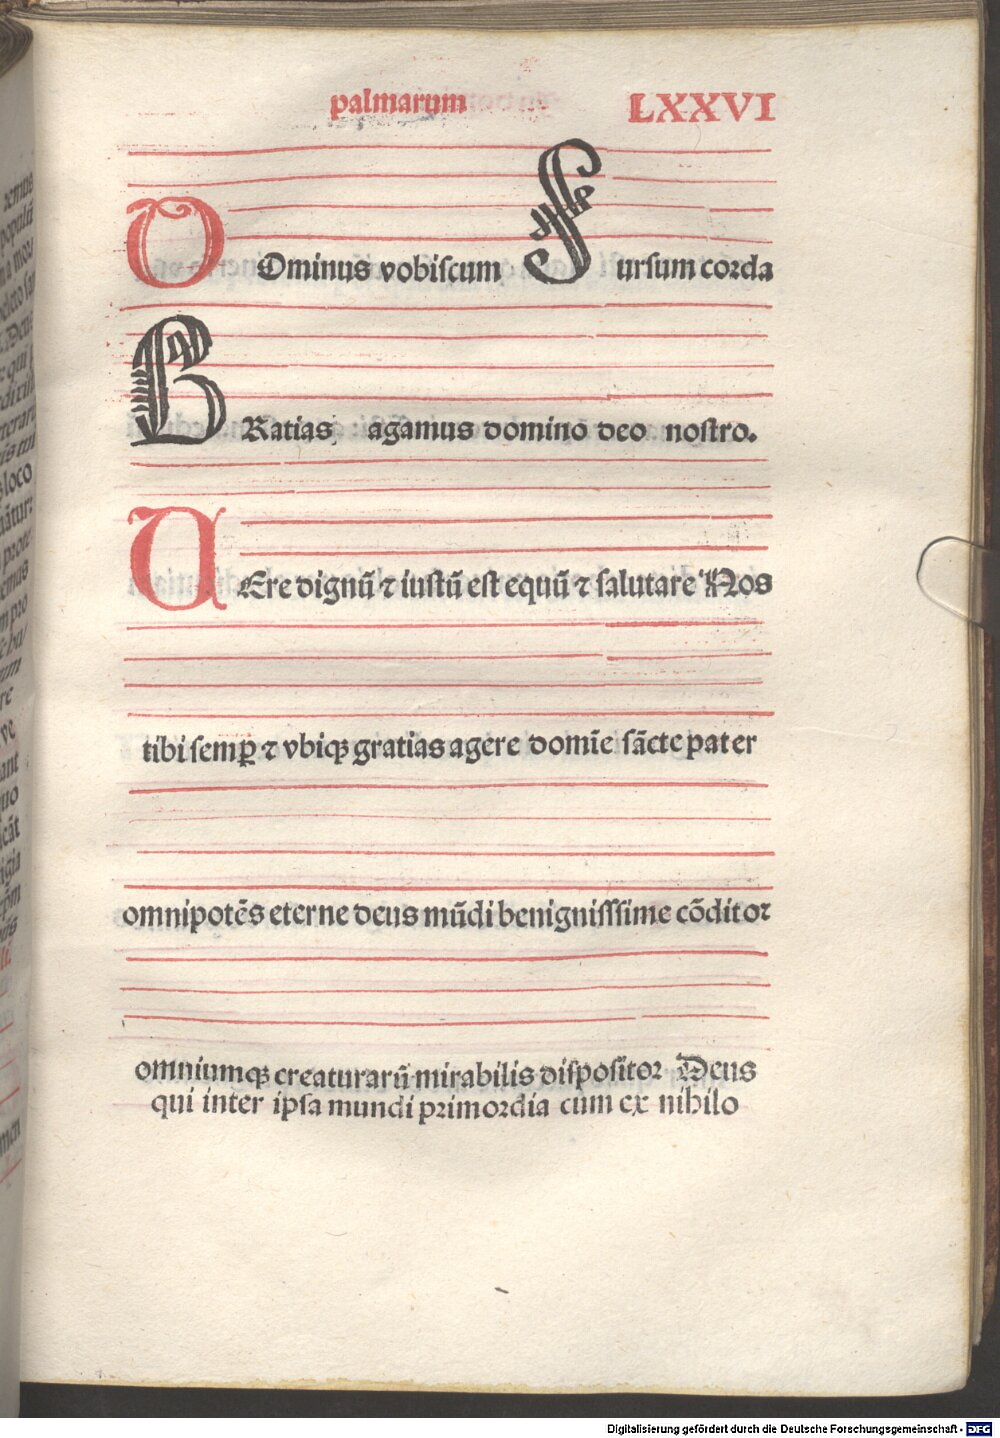 palmarum LXXVI
DOminus vobiſcum Surſum corda
GRatias agamus domino deo noſtro.
VEre dignū ⁊ iuſtū eſt equū ⁊ ſalutare Nos
tibi ſemꝑ ⁊ vbiqꝫ gratias agere domīe ſācte pater
omnipotēs eterne deus mūdi benigniſſſime cōditoꝛ
omniumqꝫ creaturarū mirabilis diſpoſitoꝛ Deus
qui inter ipſa mundi pꝛimoꝛdia cum ex nihilo
Digitalisierung gefördert durch die Deutsche Forschungsgemeinschaft - DFG